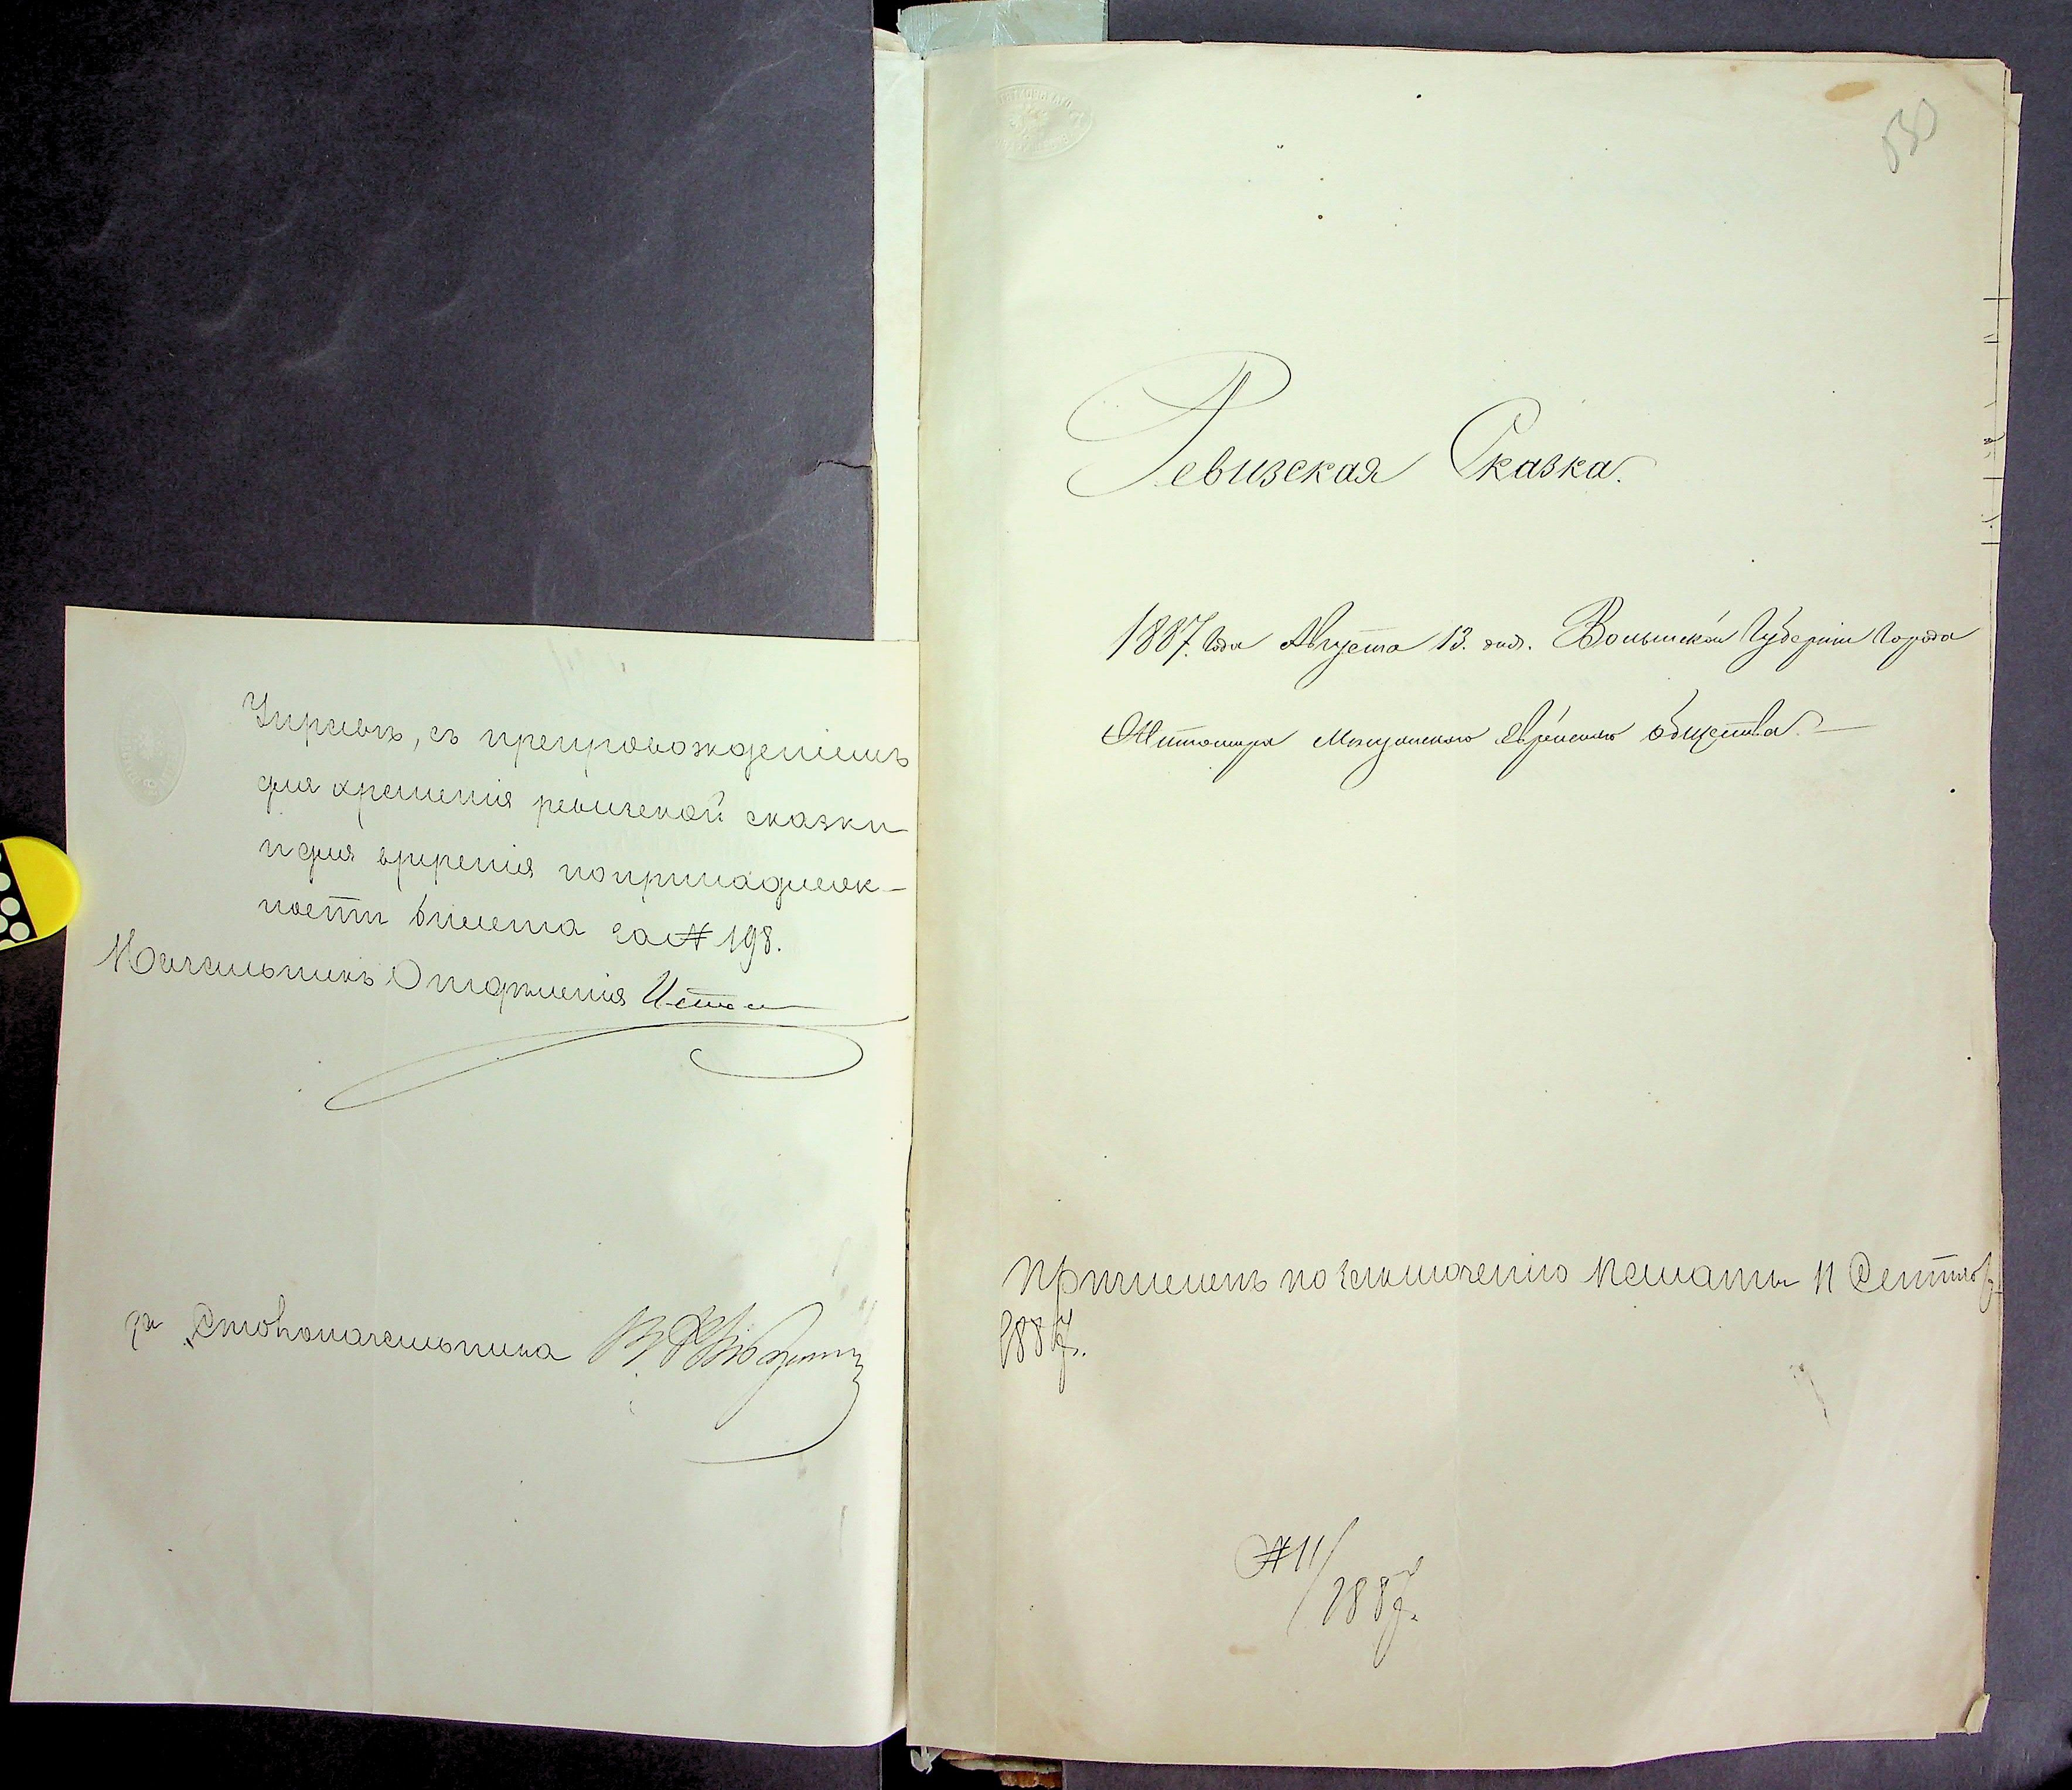 Управѣ, съ препровожденіемъ
для храненія ревизской сказки
и для врученія по принадлеж-
ности билета за № 198.
Начальникъ Отдѣленія
за Столоначальника
Ревизская Сказка.
1887. Года Августа 13. дня. Волынской Губерніи Города
Житомира Мѣщанского Еврейского общества.—
Причисленъ по заключенію Палаты 11 Сентября
1887г.
№ 11/1887г.